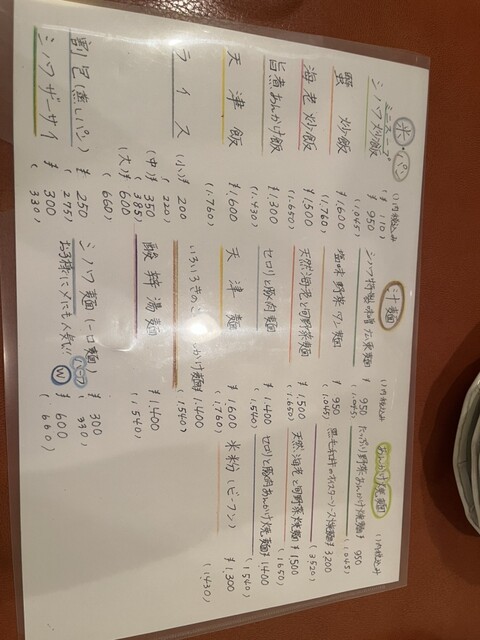 米・パン
( )内税込み
ミニスープ (¥110)
シノワ炒飯 ¥950 (1,045)
蟹炒飯 ¥1,600 (1,760)
海老炒飯 ¥1,500 (1,650)
旨煮あんかけ飯 ¥1,300 (1,430)
天津飯 ¥1,600 (1,760)
ライス (小)¥200 (220)
(中)¥350 (385)
(大)¥600 (660)
割包(蒸しパン) ¥250 (275)
シノワザーサイ ¥300 (330)
汁麺
( )内税込み
シノワ特製 ¥950 (1,045)
塩味野菜タン麺 ¥950 (1,045)
天然海老と旬野菜麺 ¥1,500 (1,650)
セロリと豚肉麺 ¥1,400 (1,540)
天津麺 ¥1,600 (1,760)
いろいろきのこあんかけ麺 ¥1,400 (1,540)
酸辣湯麺 ¥1,400 (1,540)
シノワ麺(一口麺) ¥300 (330)
お子様にも人気!! Ⓦ ¥600 (660)
あんかけ焼麺
( )内税込み
たっぷり野菜あんかけ焼麺 ¥950 (1,045)
オイスターソース焼麺 ¥3,200 (3,520)
天然海老と旬野菜焼麺 ¥1500 (1,650)
セロリと豚肉あんかけ焼麺 ¥1400 (1,540)
米粉(ビーフン) ¥1,300 (1,430)